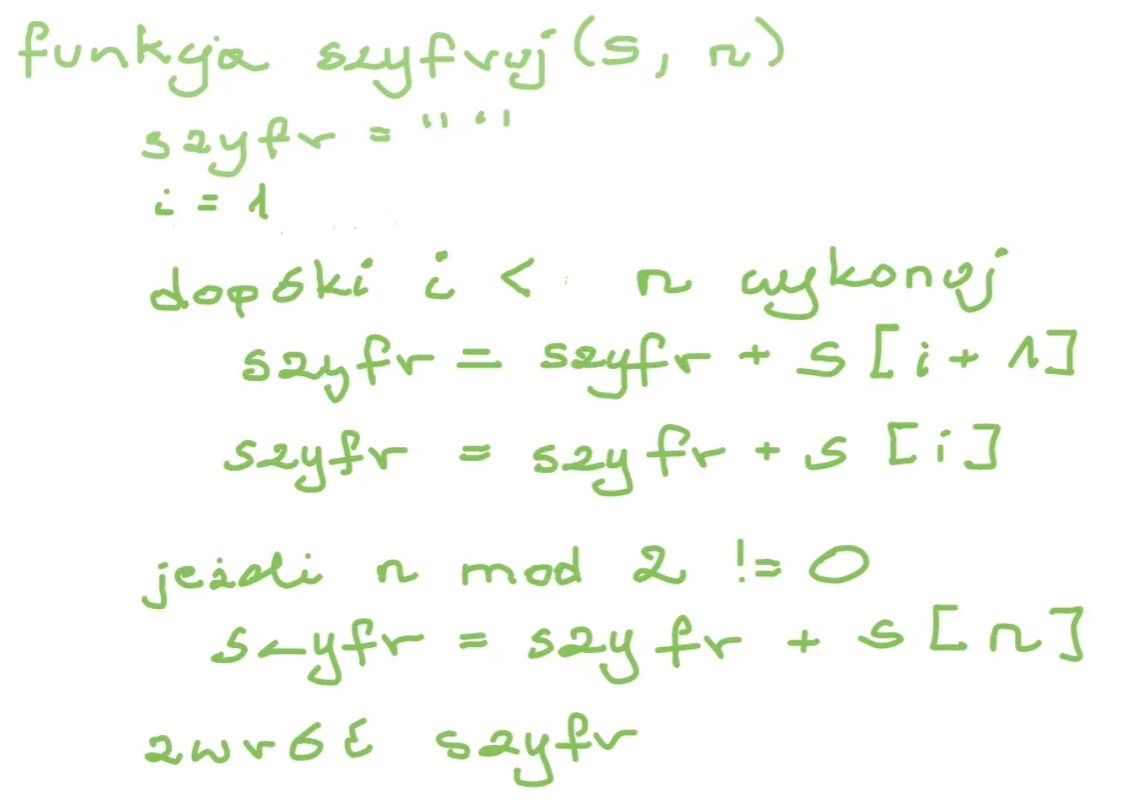 funkcja szyfruj(s, n)
szyfr = ""
i = 1
dopóki i < n wykonuj
szyfr = szyfr + s[i+1]
szyfr = szyfr + s[i]
jeżeli n mod 2 != 0
szyfr = szyfr + s[n]
zwróć szyfr